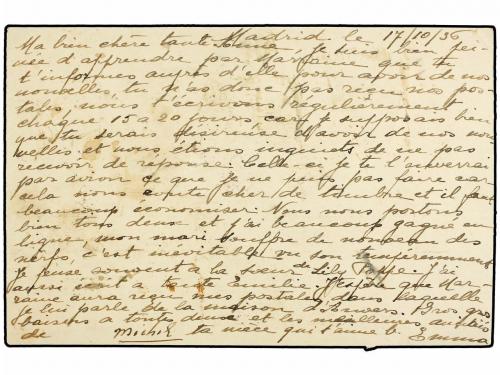 Madrid le 17/10/36
Ma bien chère tante Anne, je suis bien pei-
née d'apprendre par Marraine que tu
t'informes auprès d'elle pour avoir de nos
nouvelles, tu n'as donc pas reçu nos pos-
tales, nous t'écrivons regulièrement
chaque 15 a 20 jours car je supposais bien
que tu serais désireuse d'avoir de nos nou-
velles et nous étions inquiets de ne pas
recevoir de réponse. Celle-ci je te l'enverrai
par avion ce que je ne puis pas faire car
cela nous coute cher de timbre et il faut
beaucoup économiser. Nous nous portons
bien tous deux et j'ai beaucoup gagné en
ligne, mon mari souffre de nouveau des
nerfs, c'est inevitable vu son temperamment
Je pense souvent a la sœur de Lily J'ai
aussi écrit a tante Emilie. J'espère que Mar-
raine aura reçu mes postales dans laquelle
je lui parle de la maison d'Anvers. Bros gros
baisers a toutes deux et les meilleures amitiés
de Michel ta nièce qui t'aime b. Emma